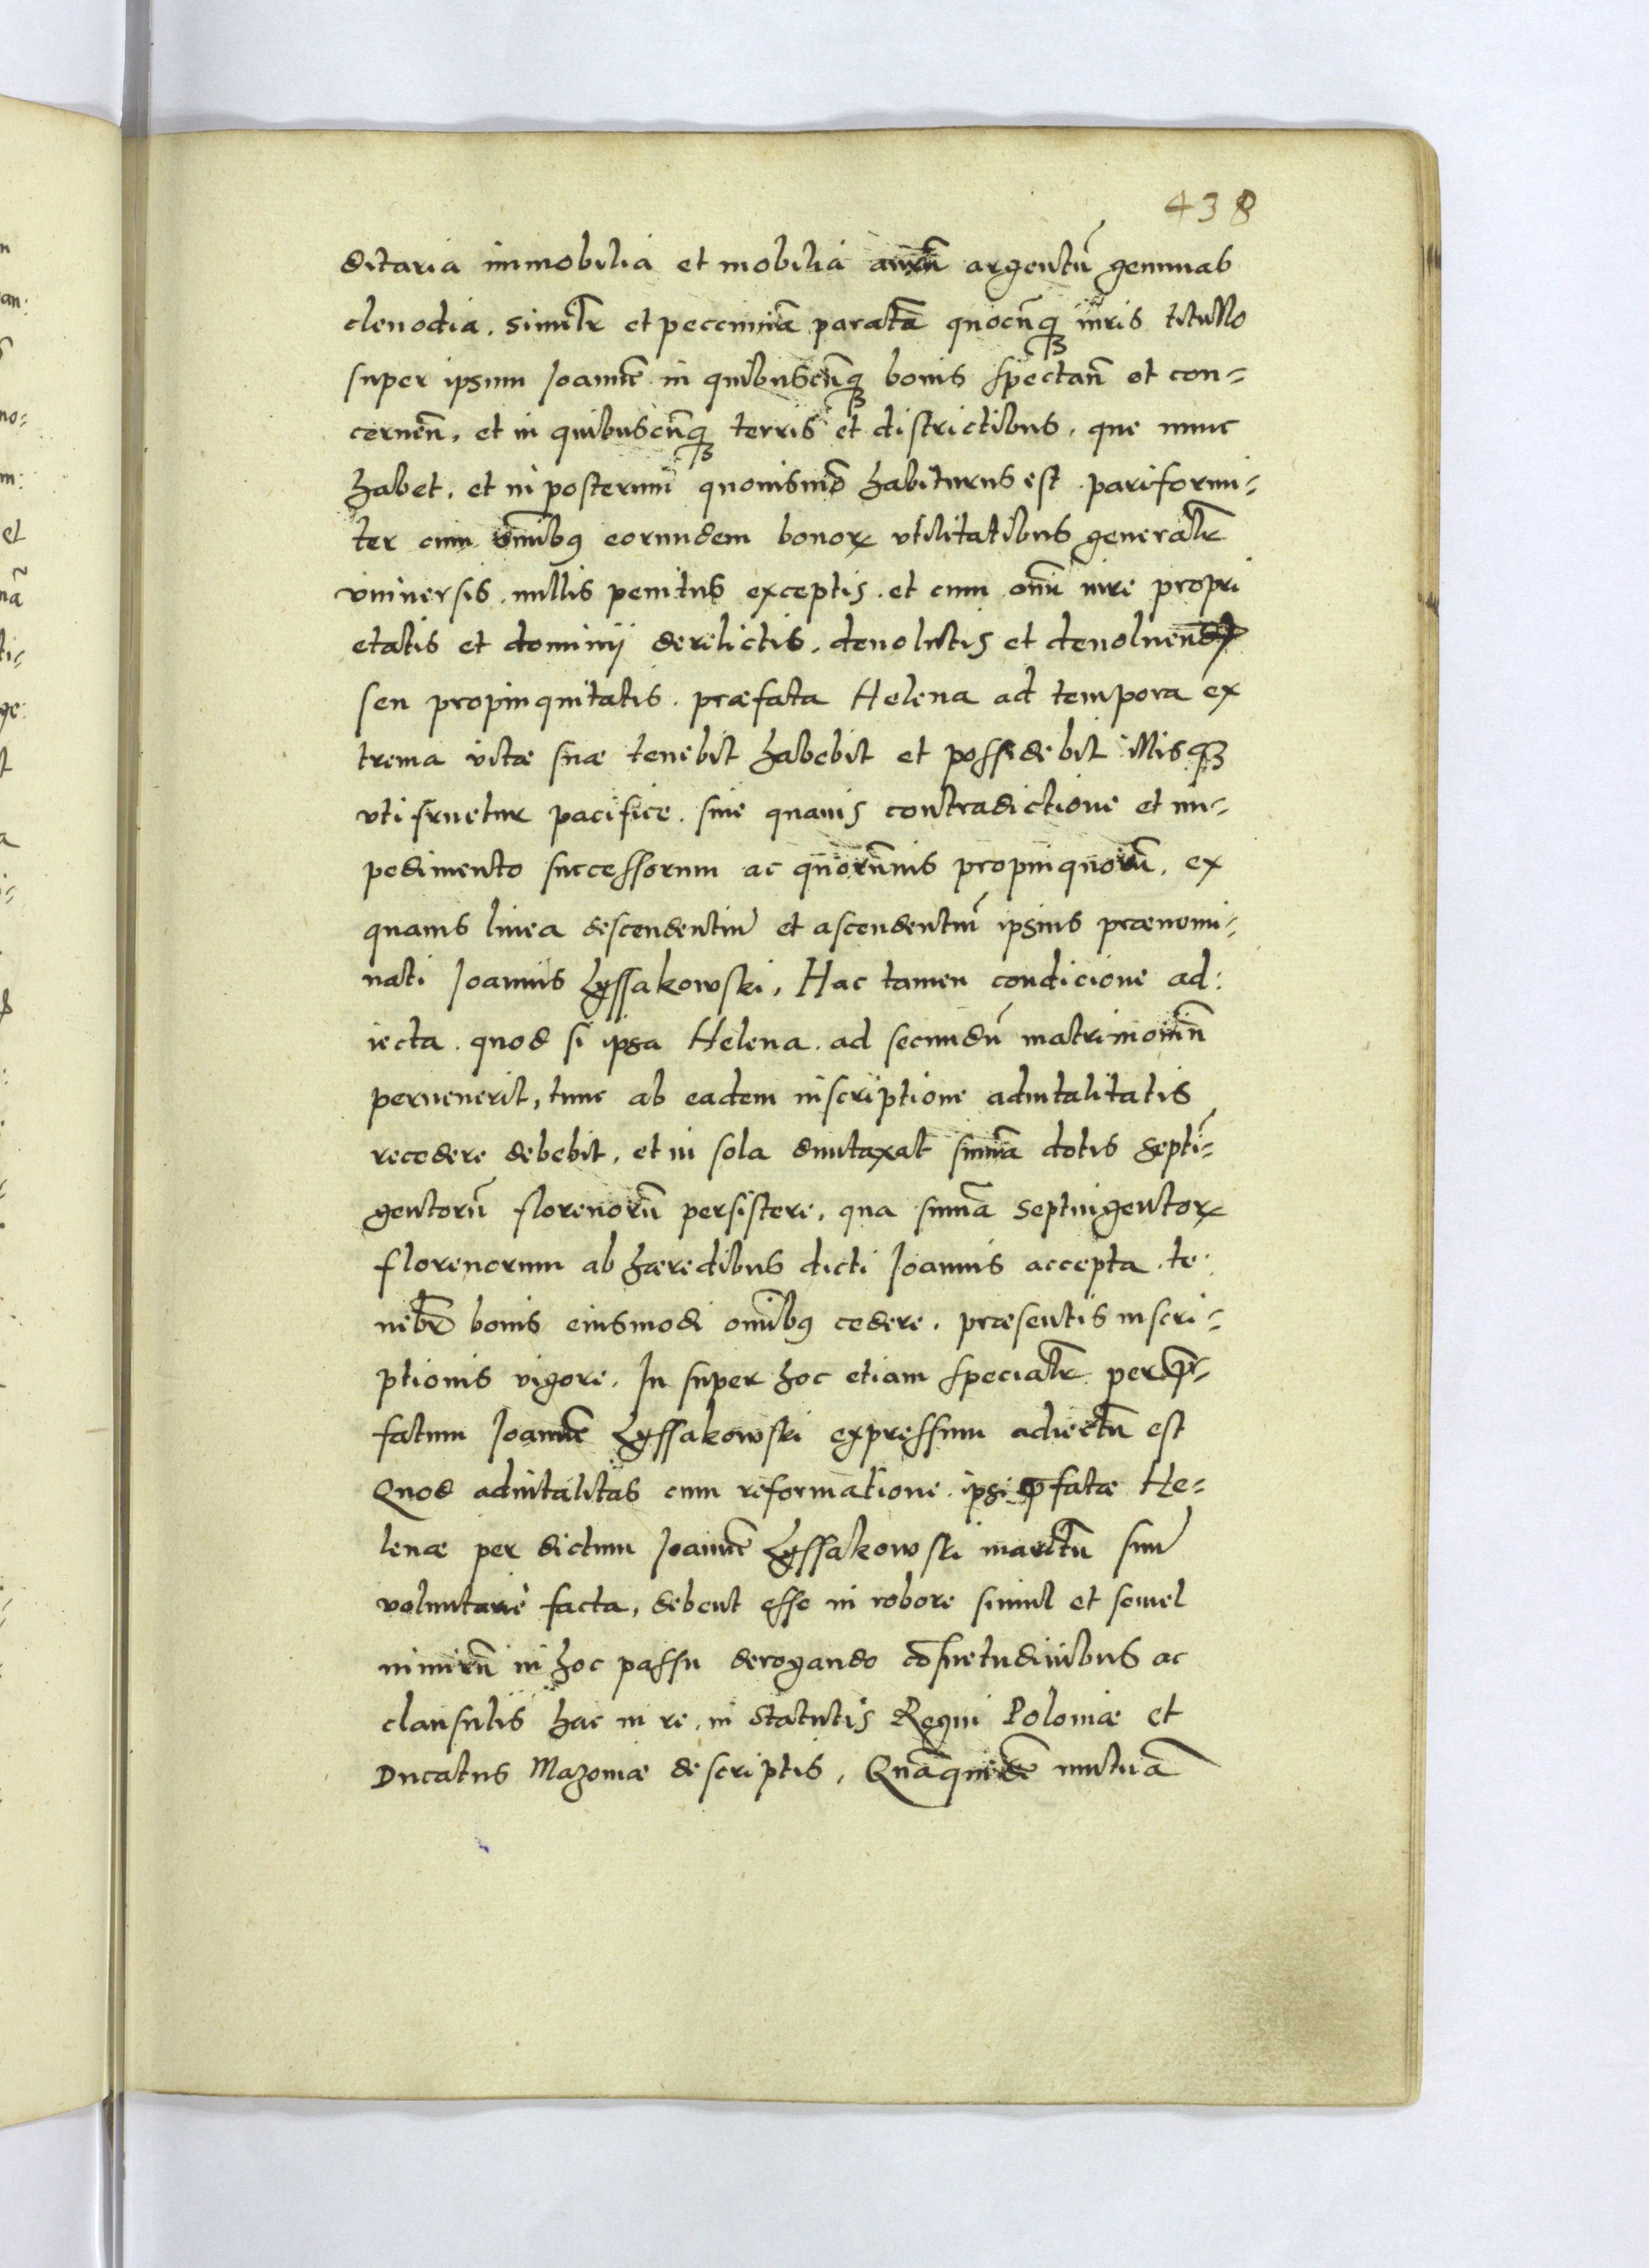 438
ditaria immobilia et mobilia aurū argentū gemmas
clenodia. simulr et peccuniā paratā quocūq iuris titullo
super ipsum Joannē in quibuscūq bonis spectañ et con=
cerneñ, et in quibuscūq terris et districtibus, que nunc
habet, et in posterum quouismō habiturus est. pariformi=
ter cum omībus eorundem bonorꝝ vtilitatibus generalr
vniuersis. nullis penitus exceptis. et cum omī iure propri
etatis et dominij derelictis, deuolutis et deuoluendꝭ
seu propinquitatis. præfata Helena ad tempora ex
trema vitæ suæ tenebit habebit et possidebit illisqꝫ
vti fruetur pacifice. sine quauis contradictione et im=
pedimento successorum ac quorūuis propinquorū, ex
quauis linea descendentiū et ascendentiū ipsius prænomi=
nati Joannis Lyssakowski, Hac tamen condicione ad:
iecta. quod si ipsa Helena. ad secundū matrimoniū
peruenerit, tunc ab eadem inscriptione aduitalitatis
recedere debebit, et in sola duntaxat summa dotis septī=
gentorū florenorū persistere, qua sumā septingentorꝝ
florenorum ab hæredibus dicti Joannis accepta. te
nebr bonis eiusmodi omībus cedere. præsentis inscri=
ptionis vigore. In super hoc etiam specialr per pr=
fatum Joannē Lyssakowski expressum adiectū est
Quod aduitalitas cum reformatione. ipsi p̄fatæ He=
lenæ per dictum Joannē Lyssakowski maritū suū
voluntarie facta, debent esse in robore simul et semel
nimirū in hoc passu derogando cōsuetudinibus ac
clausulis hac in re, in statutis Regni Poloniæ et
Ducatus Mazouiæ descriptis, Quāquidē mutuā